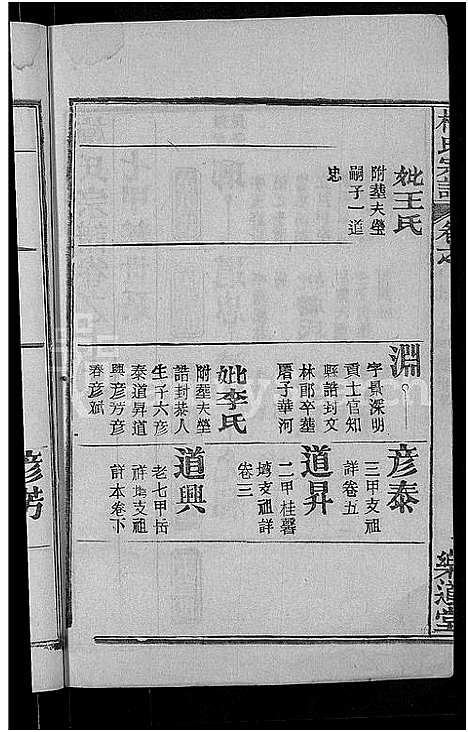 氏宗譜
卷之
樂道堂
妣王氏
附塟夫塋
嗣子一道
忠
淵
字景深明
貢士官知
縣誥封文
林郎卒塟
厝子華河
妣李氏
附塟夫塋
誥封恭人
生子六彥
泰道昇道
興彥芳彥
春彥斌
彥泰
三甲支祖
詳卷五
道昇
二甲桂馨
塆支祖詳
卷三
道興
老七甲岳
祥支祖
詳本卷下
彥芳